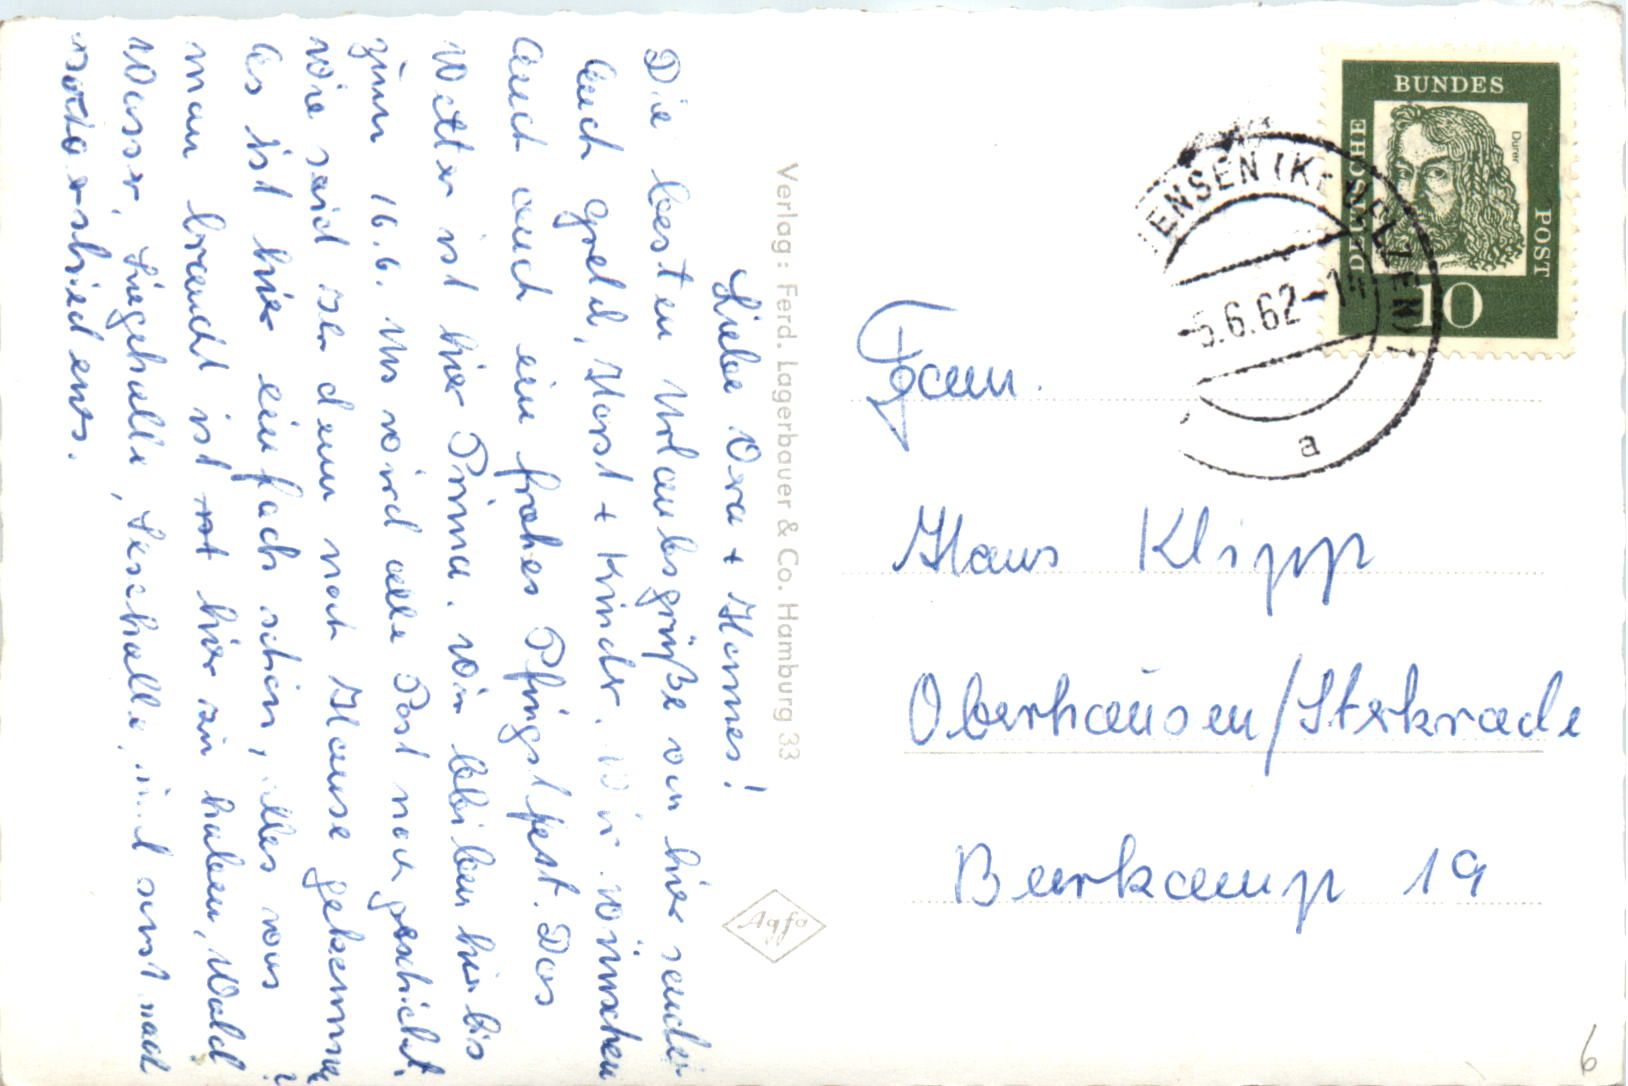 Liebe Ora + Hannes!
Die besten Urlaubsgrüße von hier sendet
Euch Gretel, Horst + Kinder. Wir wünschen
Euch auch ein frohes Pfingstfest. Das
Wetter ist hier Prima. Wir bleiben hier bis
zum 16.6. Uns wird alle Post nachgeschickt.
Wie seid ihr denn nach Hause gekommen?
Es ist hier einfach schön, alles was
man braucht ist hier zu haben, Wald
Wasser, Liegehalle, Lesehalle, und sonst noch
verschiedenes.
Verlag: Ferd. Lagerbauer & Co. Hamburg 33
Agfa
DEUTSCHE
BUNDES
POST
Dürer
10
ENSEN (KR UELZEN)
-5.6.62-1
a
Fam.
Hans Klipp
Oberhausen/Sterkrade
Beerkamp 19
6